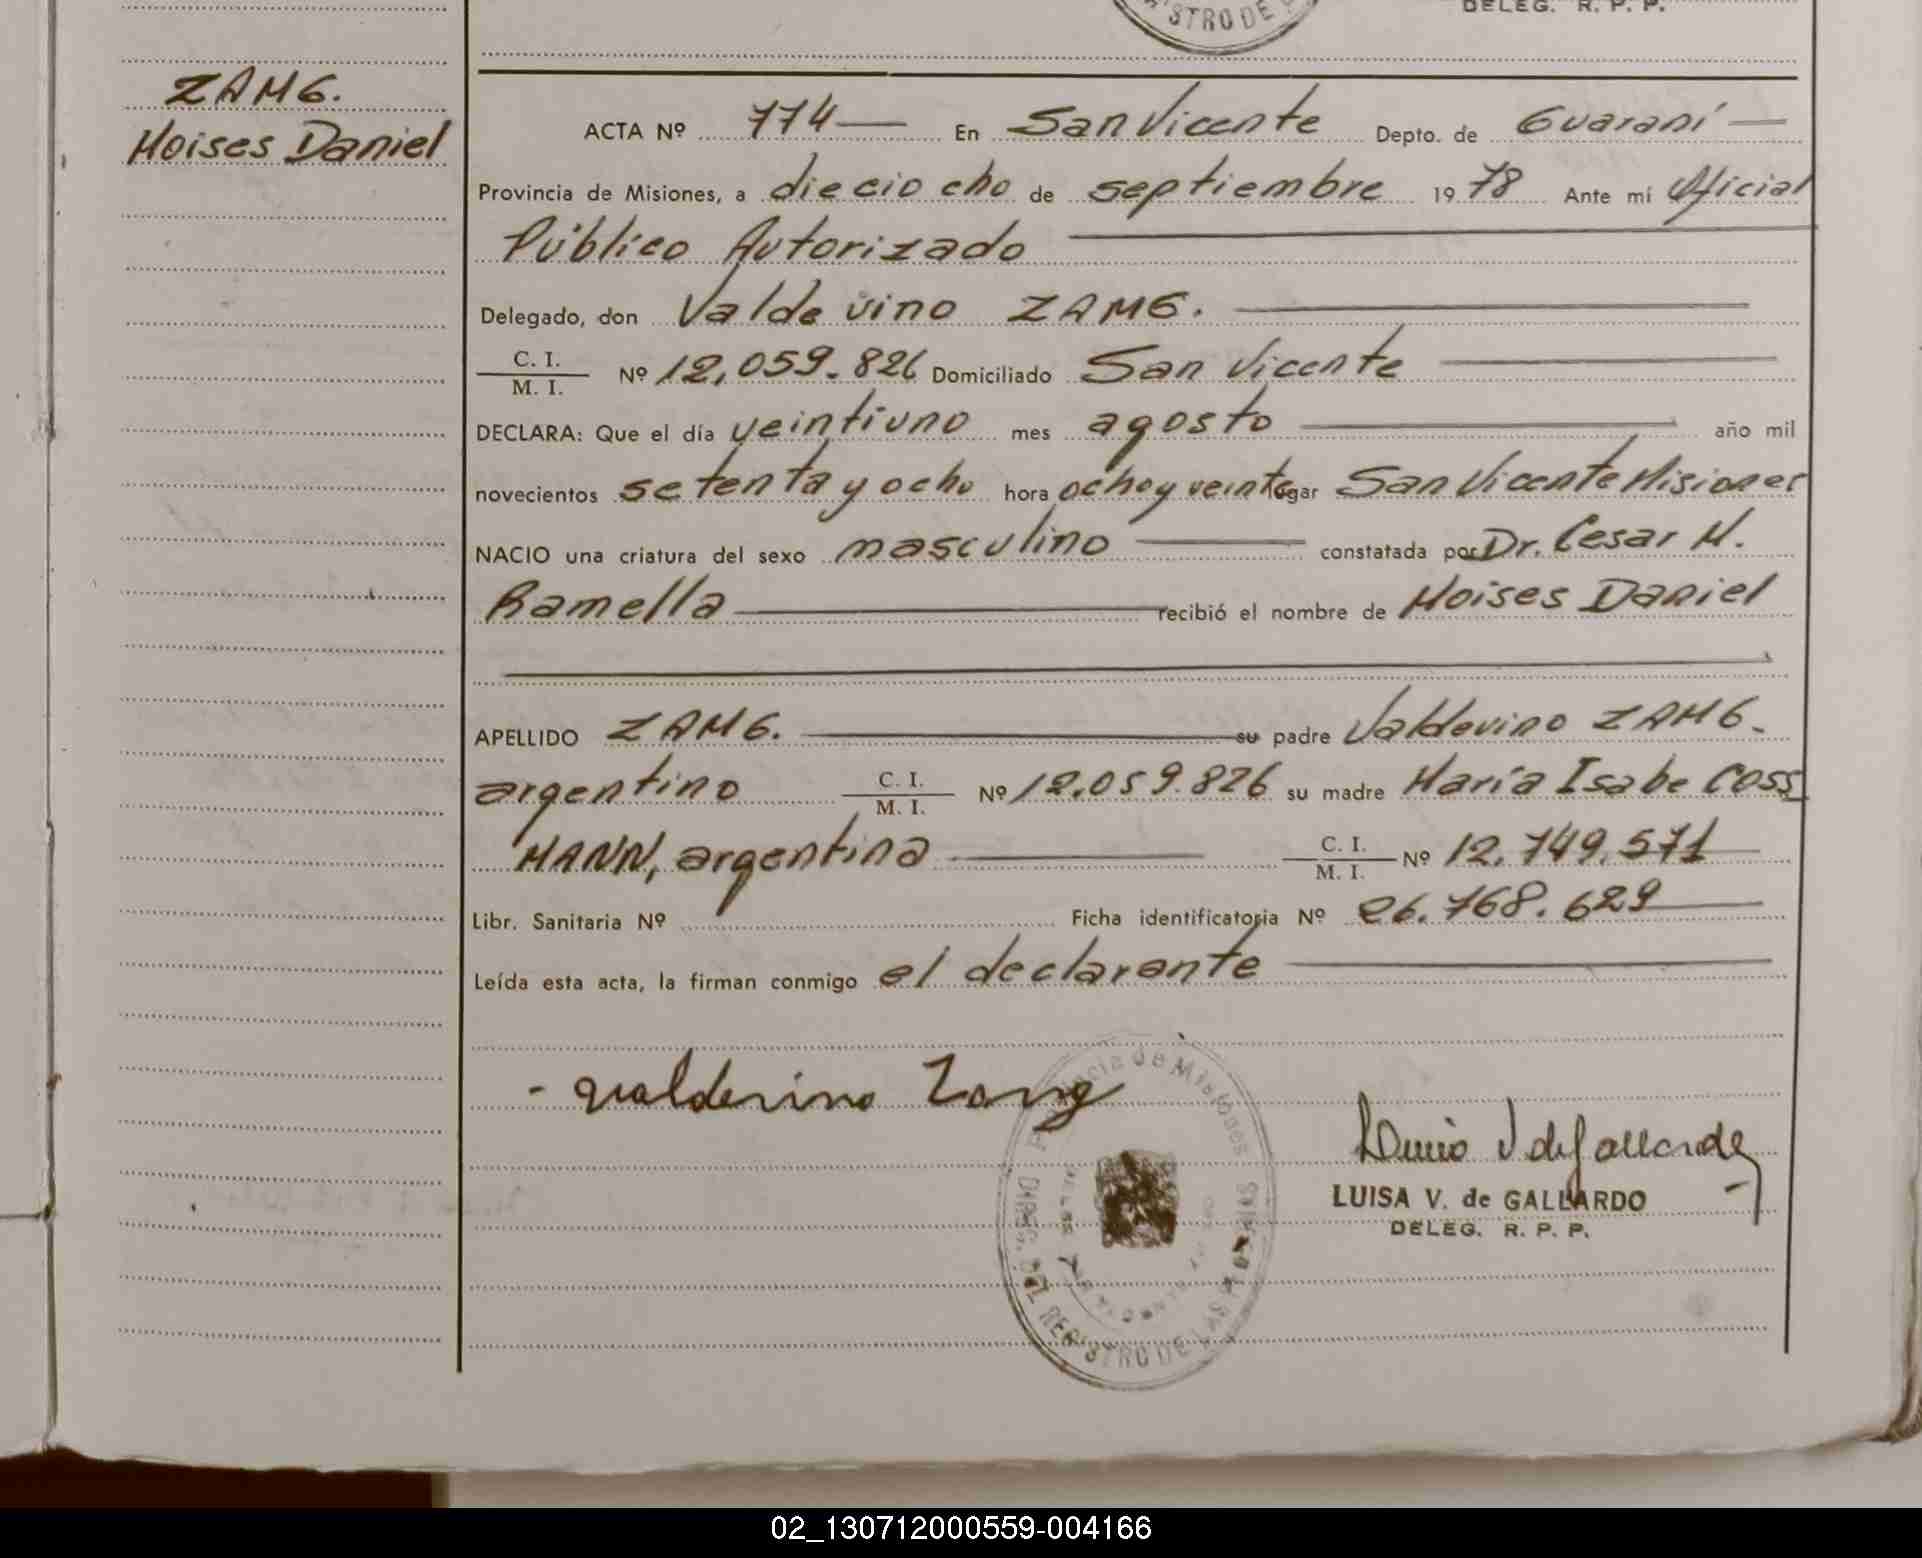 STRO DE
DELEG. R. P. P.
ZAMG.
Moises Daniel
ACTA Nº 774 En San Vicente Depto. de Guaraní
Provincia de Misiones, a dieciocho de septiembre 1978 Ante mí Oficial
Público Autorizado
Delegado, don Valdevino ZAMG.
C. I.
M. I. Nº 12,059.826 Domiciliado San Vicente
DECLARA: Que el día veintiuno mes agosto año mil
novecientos setenta y ocho hora ocho y veinte lugar San Vicente Misiones
NACIO una criatura del sexo masculino constatada por Dr. Cesar M.
Ramella recibió el nombre de Moises Daniel
APELLIDO ZAMG. su padre Valdevino ZAMG.
argentino C. I.
M. I. Nº 12.059.826 su madre María Isabe COSS
MANN, argentina C. I.
M. I. Nº 12.749.571
Libr. Sanitaria Nº Ficha identificatoria Nº 26.768.629
Leída esta acta, la firman conmigo el declarante
- Valdevino Zang
Provincia de Misiones
DIREC. DEL REGISTRO DE LAS PERSONAS
Luisa V de Gallardo
LUISA V. de GALLARDO
DELEG. R. P. P.
02_130712000559-004166